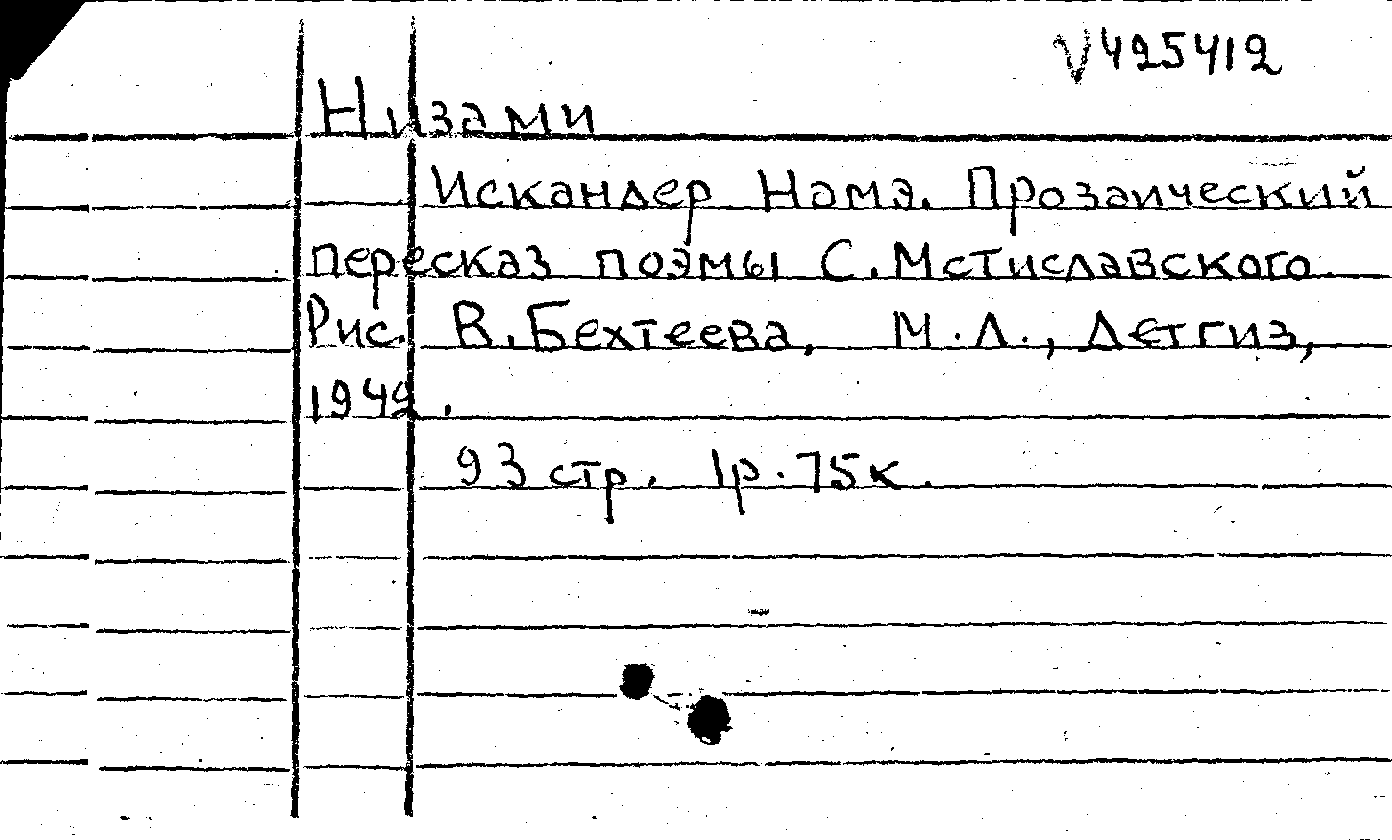 V425412
Низами
Искандер Намэ. Прозаический
пересказ поэмы С.Мстиславского
Рис. В.Бехтеева, М.Л., Детгиз,
1942.
93 стр. 1р.75к.